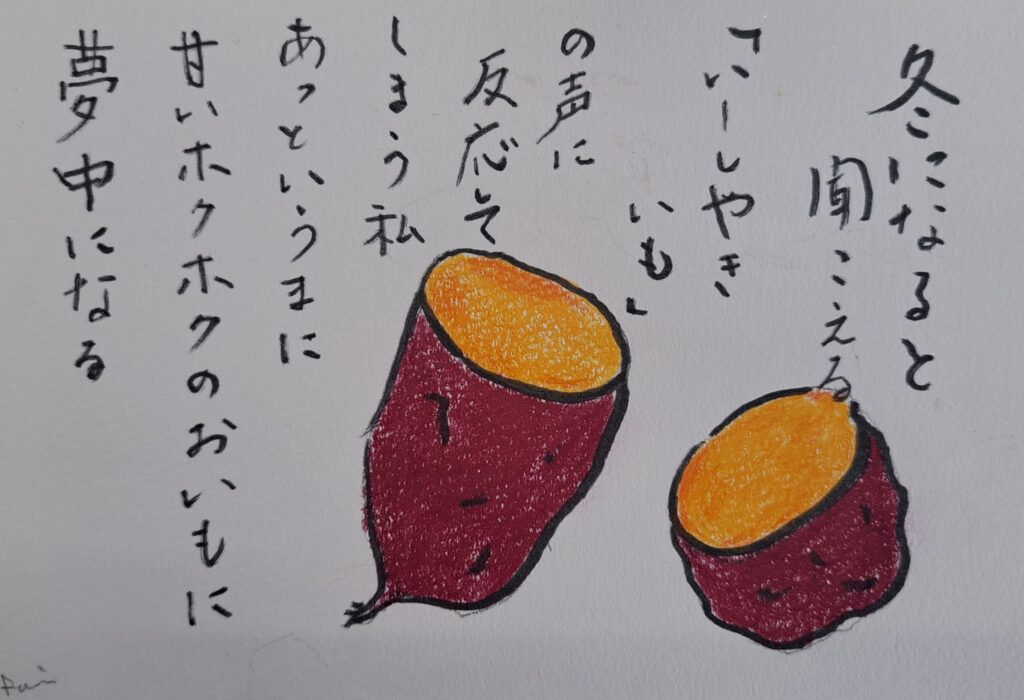 冬になると
聞こえる
「いーしやき
いも」
の声に
反応して
しまう私
あっというまに
甘いホクホクのおいもに
夢中になる